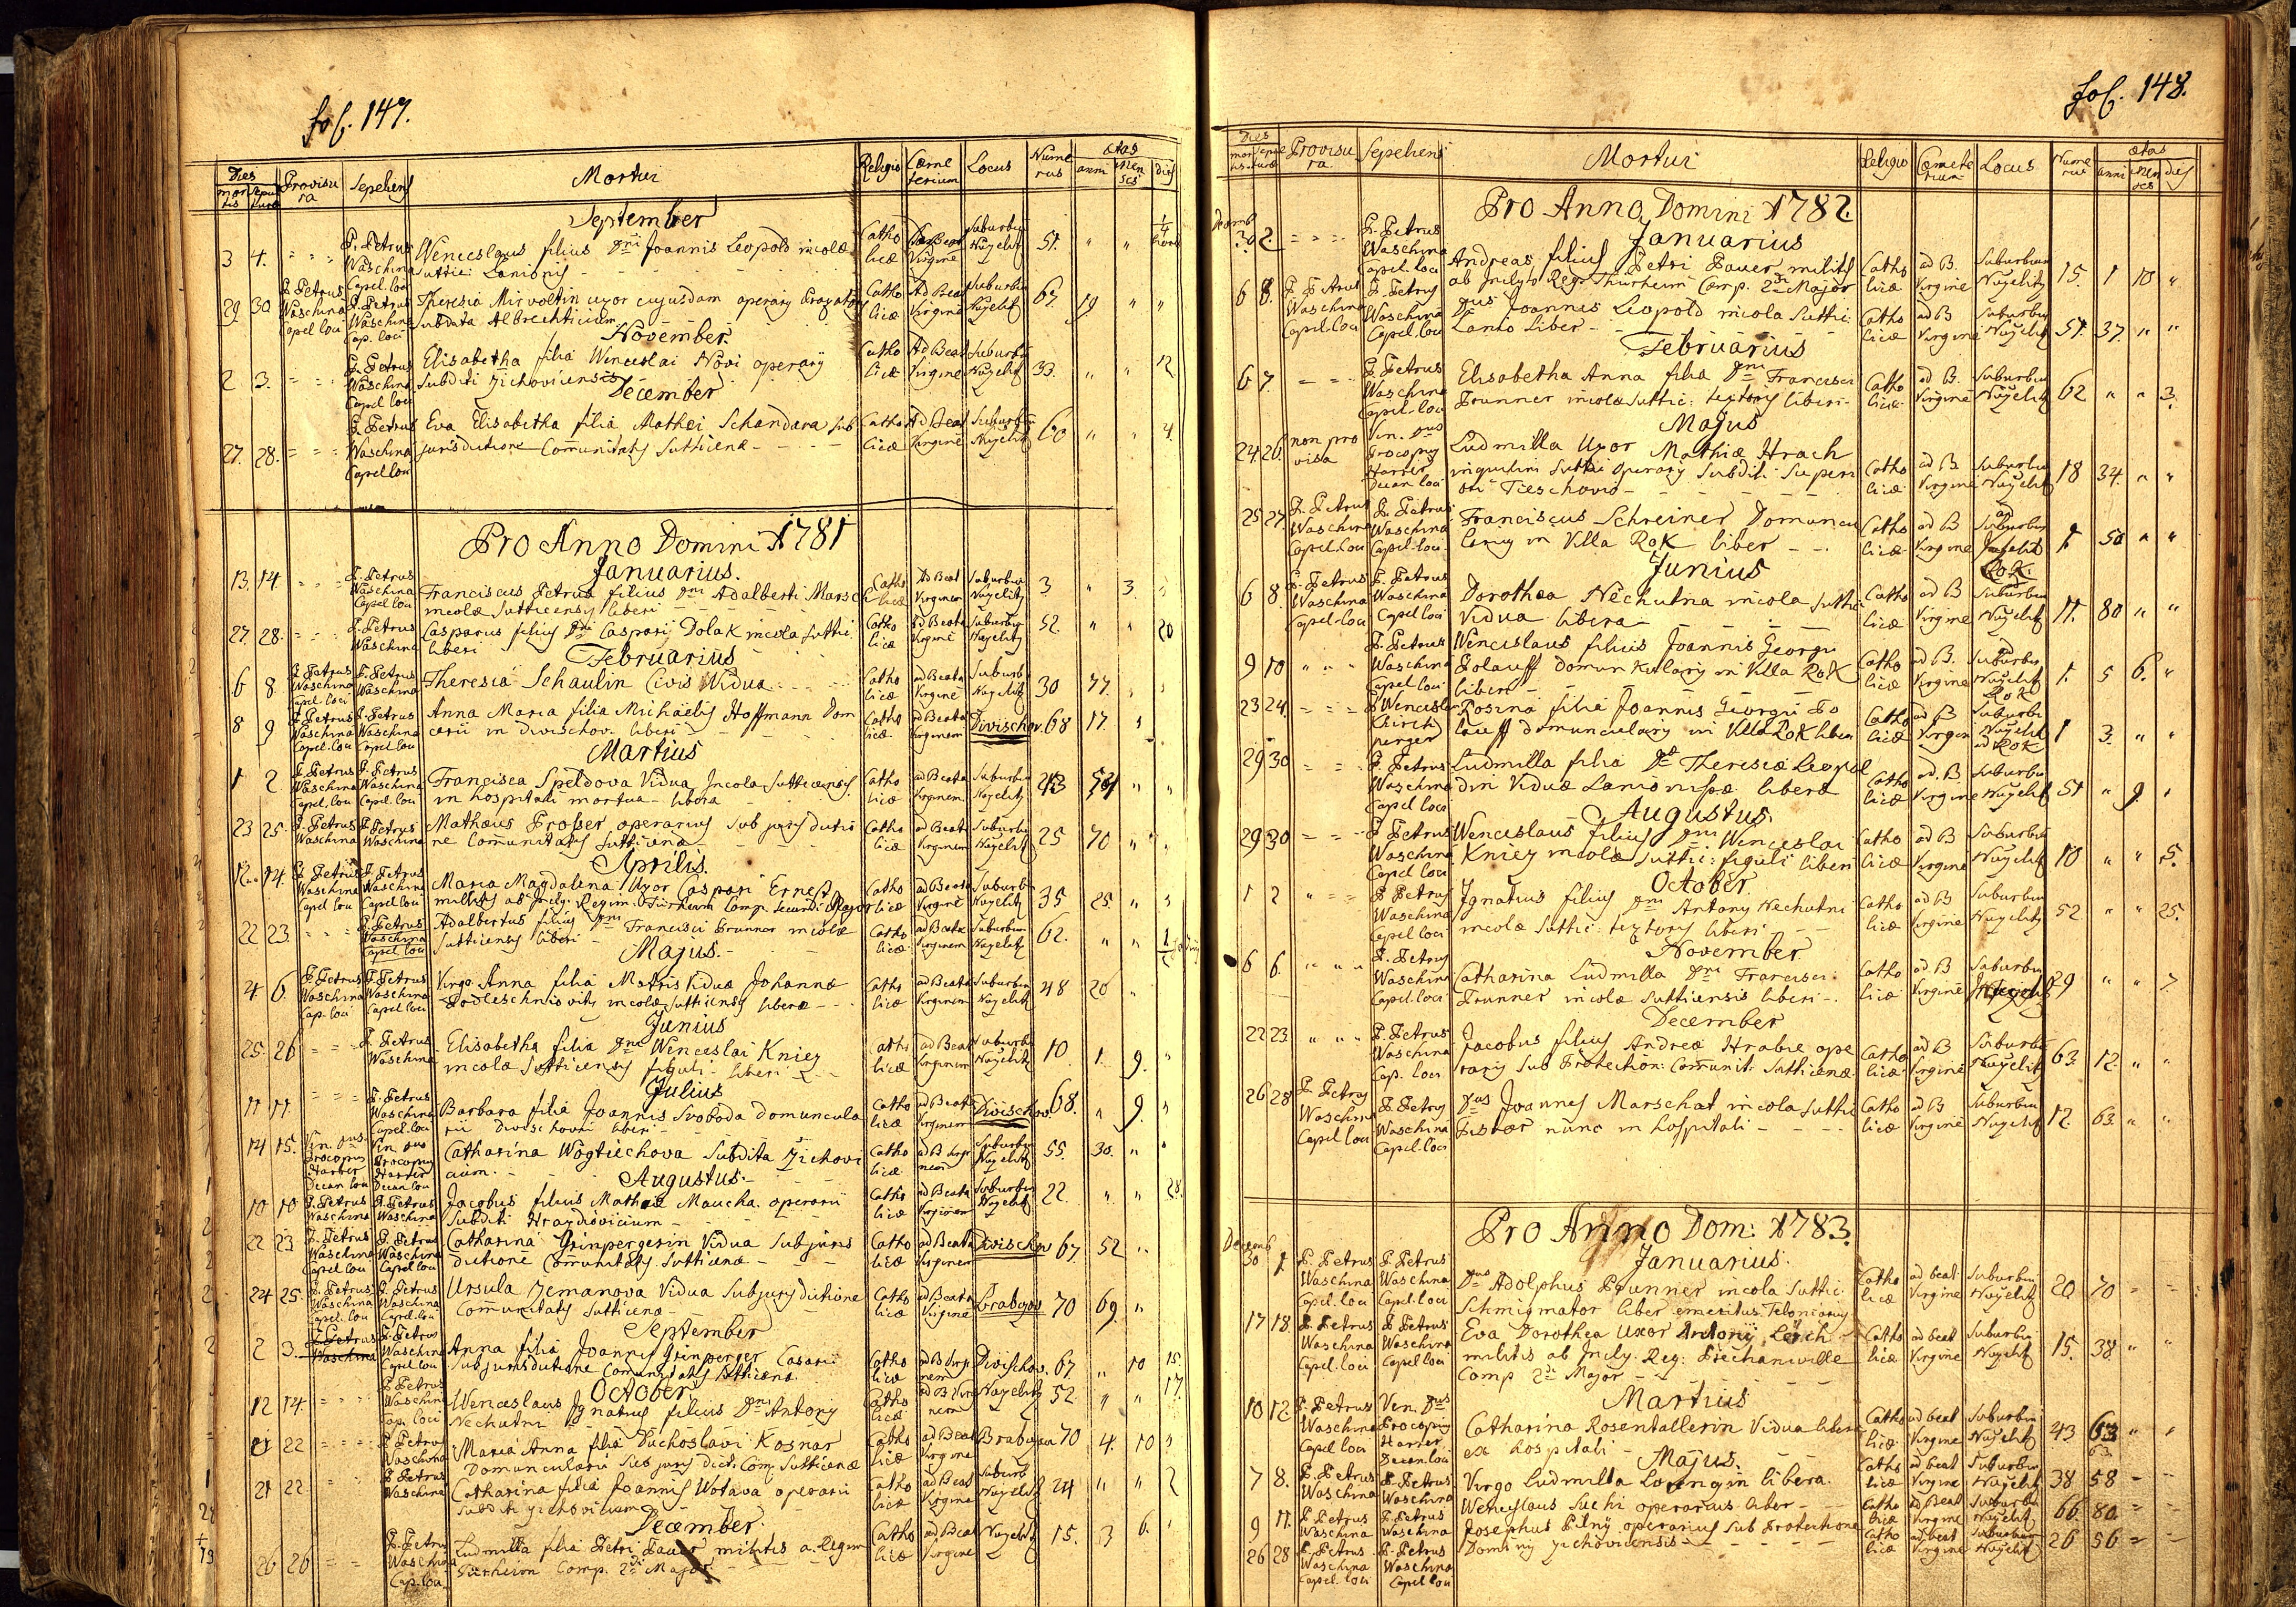 fol. 147.
Dies
mortis
Sepulturæ
Provisura
Sepeliens
Mortui
Religio
Cæmeterium
Locus
Numerus
ætas
anni
Menses
dies
September
3 4. P. Petrus Waschina Capel. loci
Wenceslaus filius Dni Joannis Leopold incolæ
Suttic: Lanionis
Catholicæ Virgine Suburbiū Nuzelitz 51.
29 30 P. Petrus Waschina Capel loci P. Petrus Waschina Cap. loci
Theresia Mirvoltin uxor cujusdam operarÿ
subdata Albrechticium
Catholicæ Ad Beat Virginē Suburbiū Nuzelitz 67. 19 " "
November.
2 3. P. Petrus Waschina Capel loci
Elisabetha filia Wenceslai Novi operarÿ
Subditi Zichoviciensis
Catholicæ Ad Beat Virginē Suburbiū Nuzelitz 33. " " 12
December
27. 28. P. Petrus Waschina Capel loci
Eva Elisabetha filia Mathei Schandara sub
jurisdictione Comunitatis Sutticenæ
Catholicæ Ad Beat Virginē Suburbiū Nuzelitz 60 " " 4.
Pro Anno Domini 1781
Januarius.
13. 14 P. Petrus Waschina Capel loci
Franciscus Petrus filius Dni Adalberti Marsch
incolæ Sutticensis liberi
Catholicæ Ad Beat Virginem Suburbiū Nuzelitz 3 " 3.
27. 28. P. Petrus Waschina
Casparus filius Dni Casparÿ Dolak incolæ Suttic.
liberi
Catholicæ Ad Beata Virginē Suburbiū Nuzelitz 52. " " 20
Februarius
6 8 P. Petrus Waschina Capel. loci P. Petrus Waschina
Theresia Schaulin Civis Vidua
Catholicæ ad Beata Virginē Suburbiū Nuzelitz 30 77.
8 9 P. Petrus Waschina Capel. loci P. Petrus Waschina Capel loci
Anna Maria filia Michaëlis Hoffmann Dom
carii in Divischov. liberi
Catholicæ ad Beata Virginem Divischov 68 17.
Martius
1 2 P. Petrus Waschina Capel. loci P. Petrus Waschina Capel. loci
Francisca Speldova Vidua Incola Sutticensis
in hospitali mortua libera
Catholicæ ad Beata Virginem Suburbiū Nuzelitz
23 25. P. Petrus Waschina P. Petrus Waschina
Mathæus Prosser operarius sub jurisdictio
ne Comunitatis Sutticenæ
Catholicæ ad Beat Virginem Suburbiū Nuzelitz 25 70
Aprilis.
12 14. P. Petrus Waschina Capel loci P. Petrus Waschina Capel loci
Maria Magdalena Uxor Caspari Ernest
militis ab Incly. Regim. Türheim Comp. secundi Major
Catholicæ ad Beata Virginē Suburbiū Nuzelitz 35 25.
22 23. P. Petrus Waschina Capel loci
Adalbertus filius Dni Francisci Brunner incolæ
Sutticensis liberi
Catholicæ ad Beatæ Virginem Suburbiū Nuzelitz 62.
Majus.
4 6. P. Petrus Waschina Cap. loci P. Petrus Waschina Capel loci
Virgo Anna filia Matris Viduæ Johannæ
incolæ Sutticensis liberæ
Catholicæ ad Beata Virginem Suburbiū Nuzelitz 48 20
Junius
25. 26 P. Petrus Waschina
Elisabetha filia Dni Wenceslai Kniez
incolæ Sutticensis figuli liberi
Catholicæ ad Beat Virginem Suburbiū Nuzelitz 10. 1. 9.
Julius
11 11. P. Petrus Waschina Capel. loci
Barbara filia Joannis Svoboda domuncula
rii Divischovii liberi
Catholicæ ad Beata Virginem Divischov 68. " 9.
14 15. Ven. Dnus Procopius Harrer Decan loci Ven. Dnus Procopius Harrer Decan loci
Catharina Wogtiechova Subdita Zichovi
cium.
Catholicæ ad B Virginem Suburbiū Nuzelitz 55. 30. "
Augustus.
10 10 P. Petrus Waschina P. Petrus Waschina
Jacobus filius Mathæi Maucha. operarii
Subditi Hrazdiovicium
Catholicæ ad Beata Virginem Suburbiū Nuzelitz 22. " " 28.
22 23 P. Petrus Waschina Capel loci P. Petrus Waschina Capel loci
Catharina Grinpergerin Vidua Subjuris
dictione Comunitatis Sutticenæ
Catholicæ ad Beata Virginem Divischov 67. 52 "
24 25. P. Petrus Waschina Capel. loci P. Petrus Waschina Capel. loci
Ursula Zemanova Vidua Subjurisdictione
Comunitatis Sutticenæ
Catholicæ ad Beata Virginē Brabçov 70 69. "
September
2 3. P. Petrus Waschina P. Petrus Waschina Capel loci
Anna filia Joannis Grinperger Casarii
Subjurisdictione Comunitatis Sutticenæ
Catholicæ ad B Virginem Divischov. 67. " 10 15.
October
12 14. P. Petrus Waschina Cap. loci
Wenceslaus Ignatius filius Dni Antony
Nechutni
Catholicæ ad B Virginem Nuzelitz 52. " " 17.
21 22 P. Petrus Waschina
Maria Anna filia Duchoslavi Kosnar
Domuncularii Sub juris dict: Com. Sutticenæ
Catholicæ ad Beat Virginē 70 4. 10
21 22. P. Petrus Waschina
Catharina filia Joannis Wotava operarii
Subditi Zichovicium
Catholicæ ad Beat Virginē Suburb Nuzelitz 24 " " 2
December.
26 26 P. Petrus Waschina Cap. loci
Ludmilla filia Petri Pauer militis a. Regim
Türheim Comp. 2di Major
Catholicæ ad Beat Virginē Nuzelitz 15. 3 6.
fol. 148.
Dies
mortis
Sepulturæ
Provisura
Sepeliens
Mortui
Religio
Cæmeterium
Locus
Numerus
ætas
anni
Menses
dies
Pro Anno Domini 1782.
Januarius
Decemb 30 2. P. Petrus Waschina Capel. loci
Andreas filius Petri Pauer militis
ab Inclyto Regi Thurheim Comp. 2di Major
Catholicæ ad B. Virginē Suburbium Nuzelitz 15. 1 10 "
6 8. P. Petrus Waschina Capel. loci P. Petrus Waschina Capel. loci
Dnus Joannes Leopold incola Suttic:
Lanio liber
Catholicæ ad B Virginē Suburbiū Nuzelitz 51. 37. " "
Februarius
6 7. P. Petrus Waschina Capel. loci
Elisabetha Anna filia Dni Francisci
Brunner incolæ Suttic: textoris liberi
Catholicæ ad B. Virginē Suburbiū Nuzelitz 62 " " 3.
Majus
24. 26. non provisa Ven. Dnus Procopius Harrer Decan loci
Ludmilla Uxor Mathiæ Hrach
inquilini Suttic operarÿ Subditi Superi
ori Tieschovio
Catholicæ ad B Virginē Suburbiū Nuzelitz 18 34. " "
25 27. P. Petrus Waschina Capel. loci P. Petrus Waschina Capel. loci
Franciscus Schreiner Domuncu
larius in Villa Rok liber
Catholicæ ad B Virginē Suburbiū Nuzelitz ad Rok. 1. 50 " "
Junius
6 8. P. Petrus Waschina Capel. loci P. Petrus Waschina Capel loci
Dorothea Nechutna incola Suttic
Vidua libera
Catholicæ ad B Virginē Suburbiū Nuzelitz 11. 80 " "
9 10 P. Petrus Waschina Capel loci
Wenceslaus filius Joannis Georgii
Polauff domunkularÿ in Villa Rok
liberi
Catholicæ ad B. Virginē Suburbiū Nuzelitz ad Rok 1. 5 6. "
23 24. P Wenceslaus Kirchperger
Rosina filia Joannis Georgii Po
lauff domunculary in Villa Rok liberi
Catholicæ ad B Virginē Suburbi Nuzelitz ad Rok 1 3. " "
29 30 P. Petrus Waschina Capel loci
Ludmilla filia Dæ Theresiæ Leopol
din Viduæ Lanionissæ liberæ
Catholicæ ad. B Virginē Suburbiū Nuzelitz 51 " 9.
Augustus.
29 30 P Petrus Waschina Capel loci
Wenceslaus filius Dni Wenceslai
Kniez incolæ Suttic: figuli liberi
Catholicæ ad B Virginē Suburbiū Nuzelitz 10 " " 5.
October.
1 2 P Petrus Waschina Capel loci
Ignatius filius Dni Antony Nechutni
incolæ Suttic: textoris liberi
Catholicæ ad B Virginē Suburbiū Nuzelitz 52 " " 25.
November
6 6. P. Petrus Waschina Capel. loci
Catharina Ludmilla Dni Francisci
Brunner incolæ Sutticensis liberi
Catholicæ ad. B Virginē Suburbiū
December
22 23 P. Petrus Waschina Cap. loci
Jacobus filius Andreæ Hrabie ope
rary Sub Protection: Comunit: Sutticenæ
Catholicæ ad B Virginē Suburbiū Nuzelitz 63. 12. " "
26 28 P. Petrus Waschina Capel loci P. Petrus Waschina Capel loci
Dnus Joannes Marschat incola Suttic
nunc in hospitali
Catholicæ ad B Virginē Suburbiū Nuzelitz 12. 63. " "
Pro Anno Dom: 1783.
Januarius.
Decemb 30 1. P. Petrus Waschina Capel. loci P. Petrus Waschina Capel. loci
Dnus Adolphus Brunner incola Suttic:
Schmigmator liber emeritus Teloniarius
Catholicæ ad beat Virginē Suburbiū Nuzelitz 20 70
17 18. P. Petrus Waschina Capel. loci P. Petrus Waschina Capel loci
Eva Dorothea Uxor Antonÿ Lerch
militis ab Incly. Reg: Brechainville
Comp 2di Major
Catholicæ ad beat Virginē Suburbiū Nuzelitz 15. 38.
Martius
10 12. P. Petrus Waschina Capel loci Ven. Dnus Procopius Harrer Decan. loci
Catharina Rosentallerin Vidua libera
ex hospitali
Catholicæ ad beat Virginē Suburbiū Nuzelitz 43 63
Majus.
7 8. P. Petrus Waschina P. Petrus Waschina
Virgo Ludmilla libera.
Catholicæ ad beat Virginē Suburbiū Nuzelitz 38 58
9 11. P. Petrus Waschina P. Petrus Waschina
Wenceslaus Suchi operarius liber
Catholicæ ad Beat Virginē Suburbiū Nuzelitz 66. 80
26 28 P. Petrus Waschina Capel. loci P. Petrus Waschina Capel loci
Josephus Pilnÿ operarius sub Protectione
Dominÿ Zichoviciensis
Catholicæ ad beat Virginē Suburbiū Nuzelitz 26 56